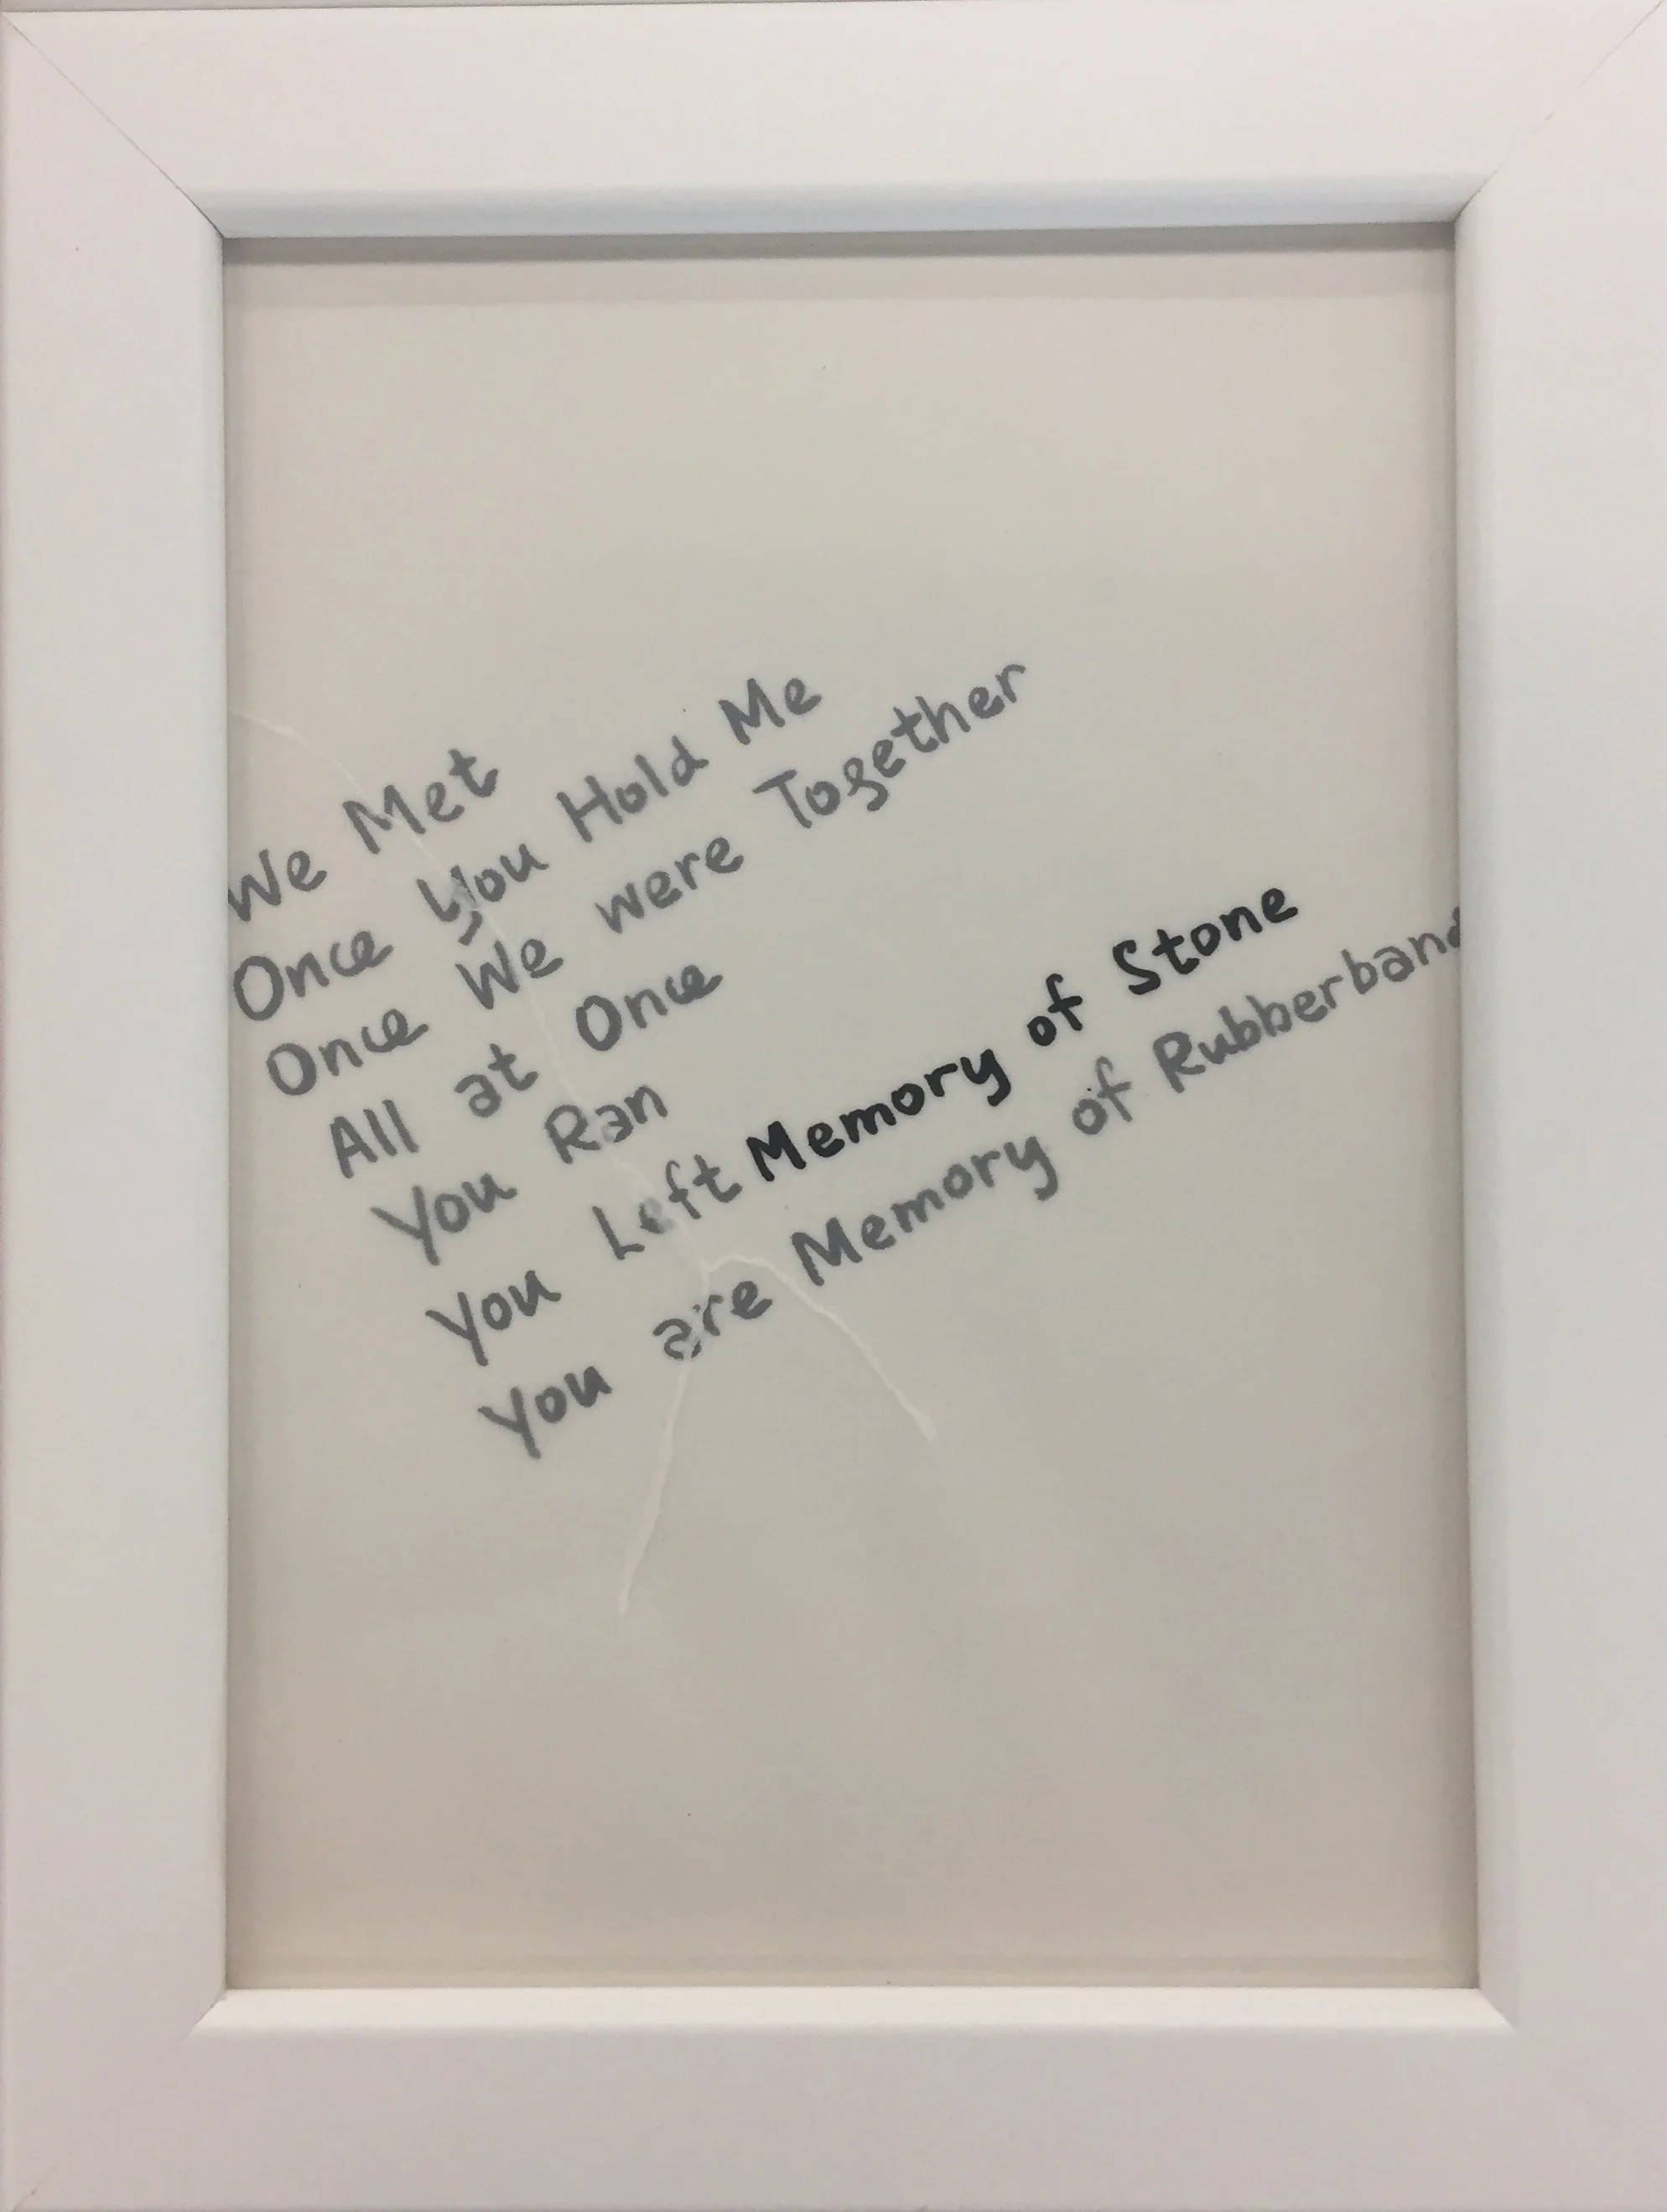 We Met
Once You Hold Me
Once We were Together
All at Once
You Ran
You Left Memory of Stone
You are Memory of Rubberband